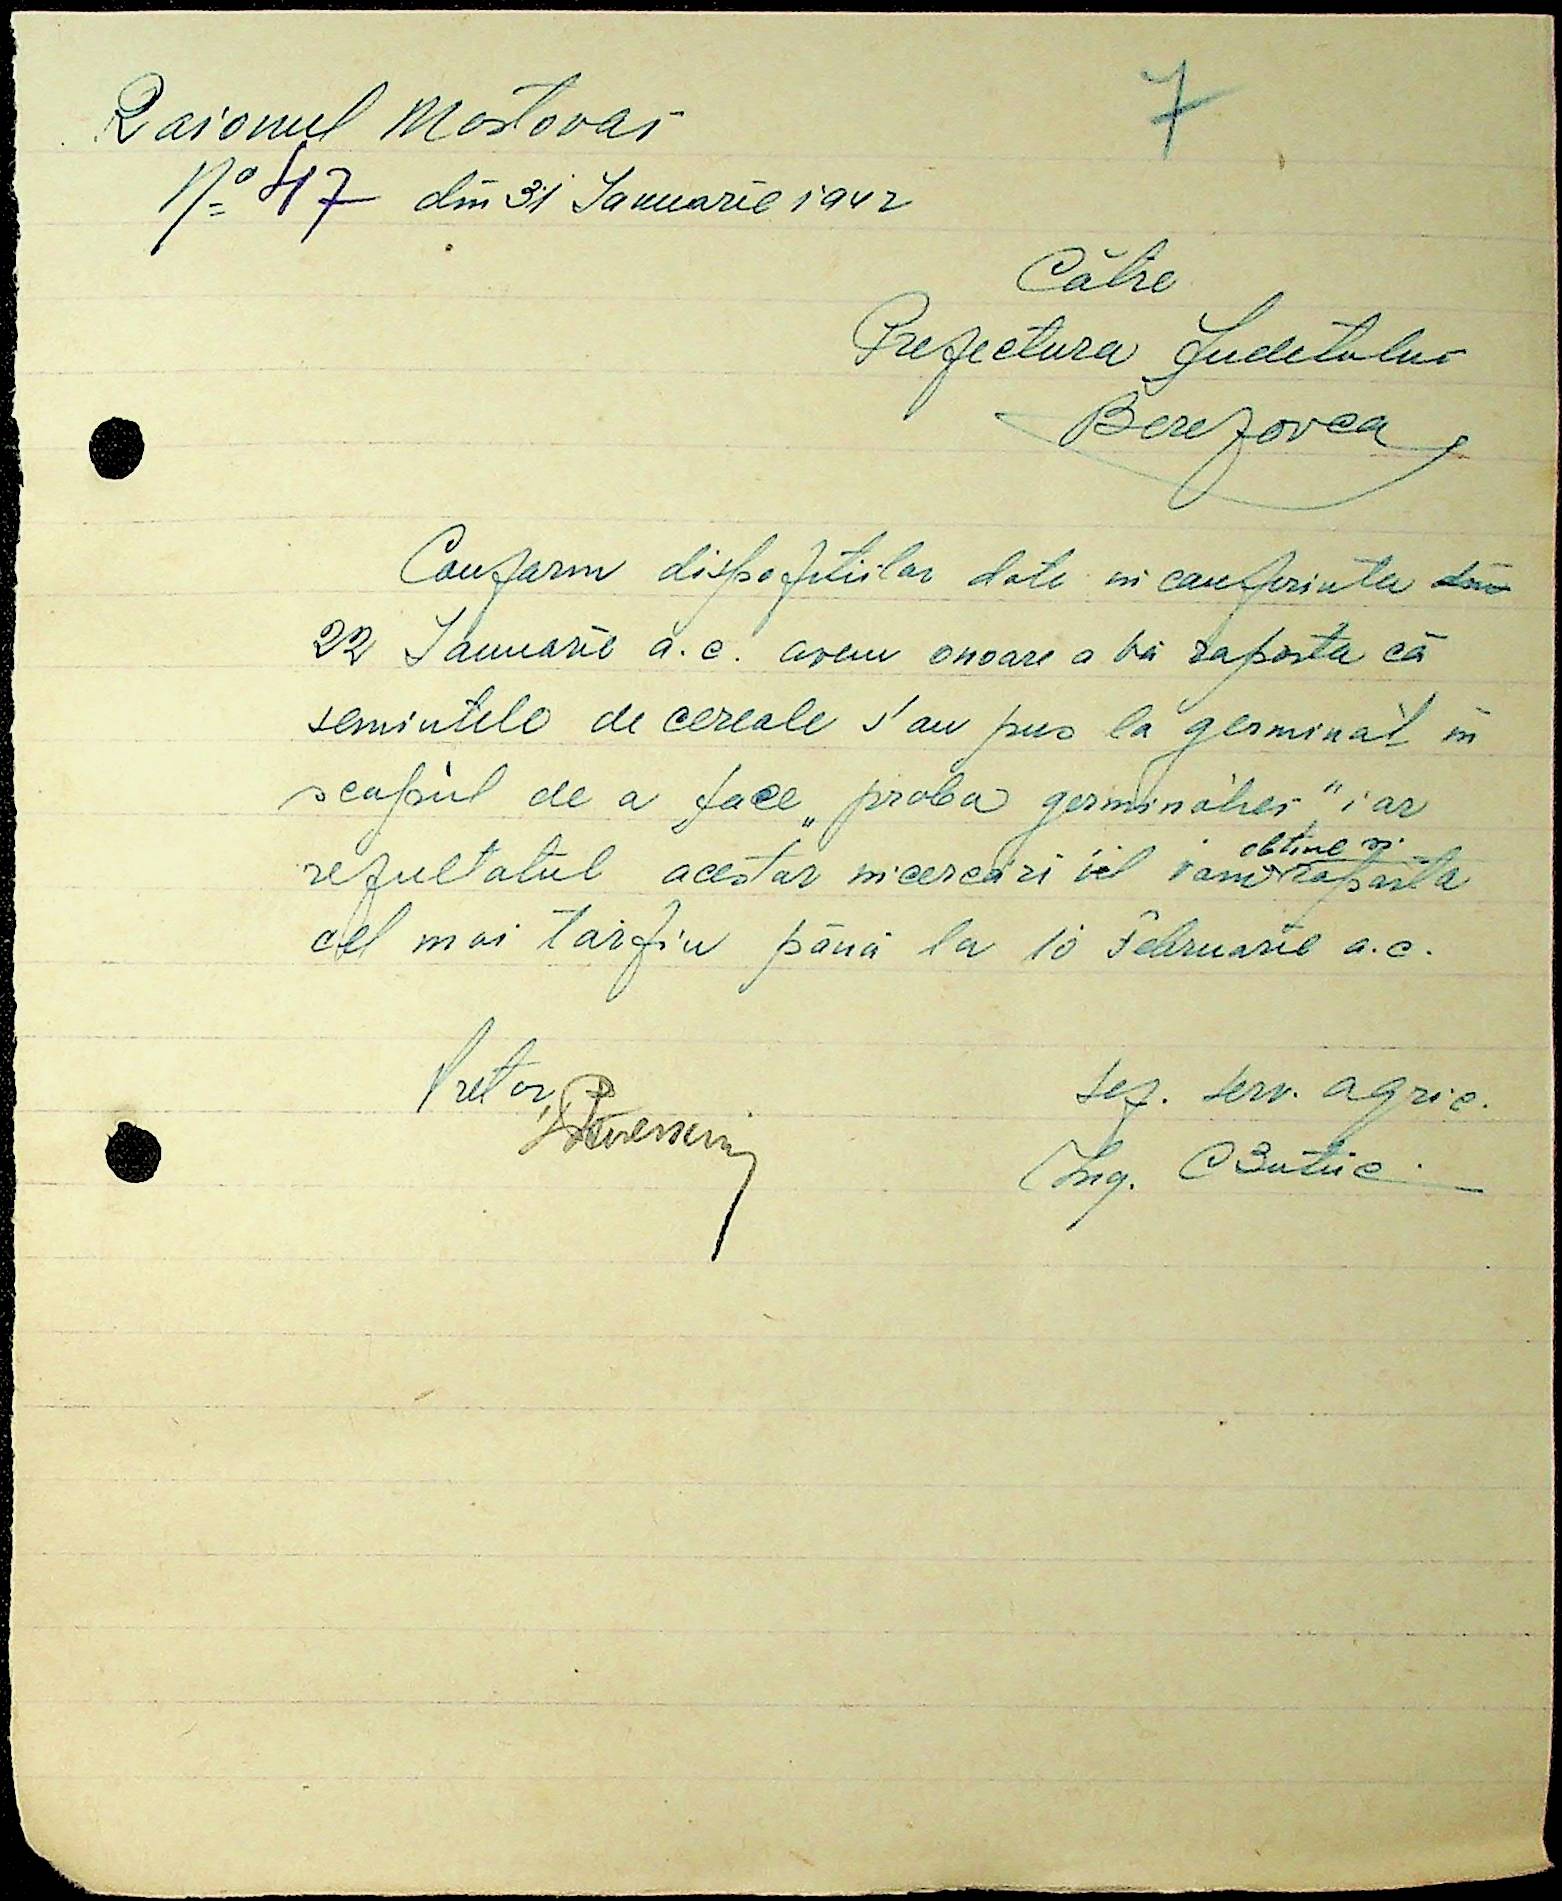 7
Raionul Mostovoi
Nº 47 din 31 Ianuarie 1942
Către
Prefectura Judetului
Berezovca
Conform dispozitiilor date in conferinta din
22 Ianuarie a.c. avem onoare a vă raporta că
semintele de cereale s'au pus la germinat in
scopul de a face „proba germinătiei" iar
rezultatul acestor incercări il vom obtine si raporta
cel mai tarziu până la 10 Februarie a.c.
Pretor,
Sef. serv. agric.
Ing.